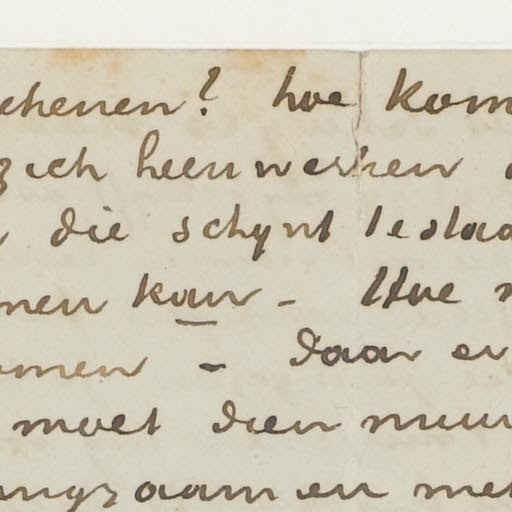 ekenen? hoe kom
zich heenwerken
die schynt te staa
men kan - Hoe
omen - daar er
moet dien muur
angzaam en met